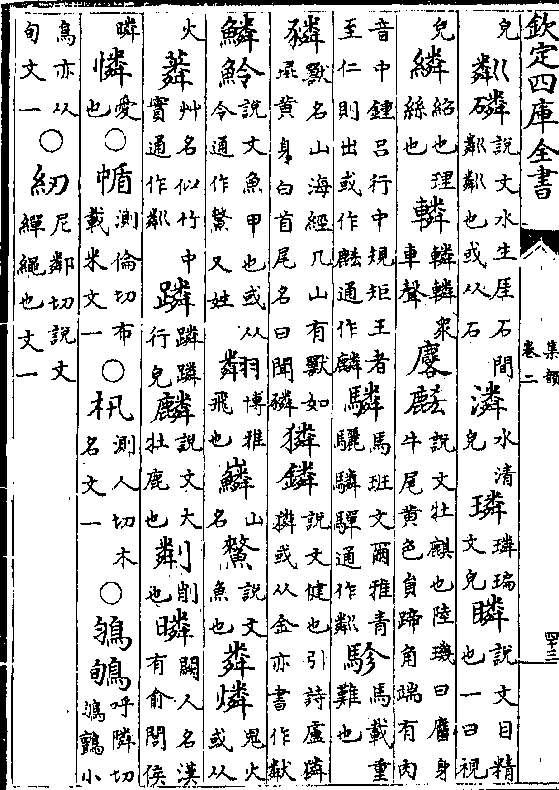 欽定四庫全書
集韻
卷二
四十三
皃粼磷說文水生厓石間粼粼也或从石潾水清皃璘璘瑞文皃瞵說文目精也一曰視
皃繗紹也理絲也轔轔轔衆車聲麐麟說文牡麒也陸璣曰麐身牛尾黄色員蹄角端有肉
音中鍾呂行中規矩王者至仁則出或作麐通作麟驎馬班文爾雅青驪驎驒通作粼駗馬載重難也
獸名山海經几山有獸如彘黄身白首尾名曰聞獜鏻說文健也引詩盧獜獜或从金亦書作
鱗魿說文魚甲也或从令通作又姓翷博雅飛也嶙山名說文魚名也粦燐鬼火或从
火艸名似竹中實通作粼蹸蹸蹸行皃麟說文大牡鹿也削也瞵闕人名漢有俞閭侯
瞵憐愛也○測倫切布載米文一○測人切木名文一○呼隣切鸛小
鳥亦从旬文一○紉尼鄰切說文繟繩也文一